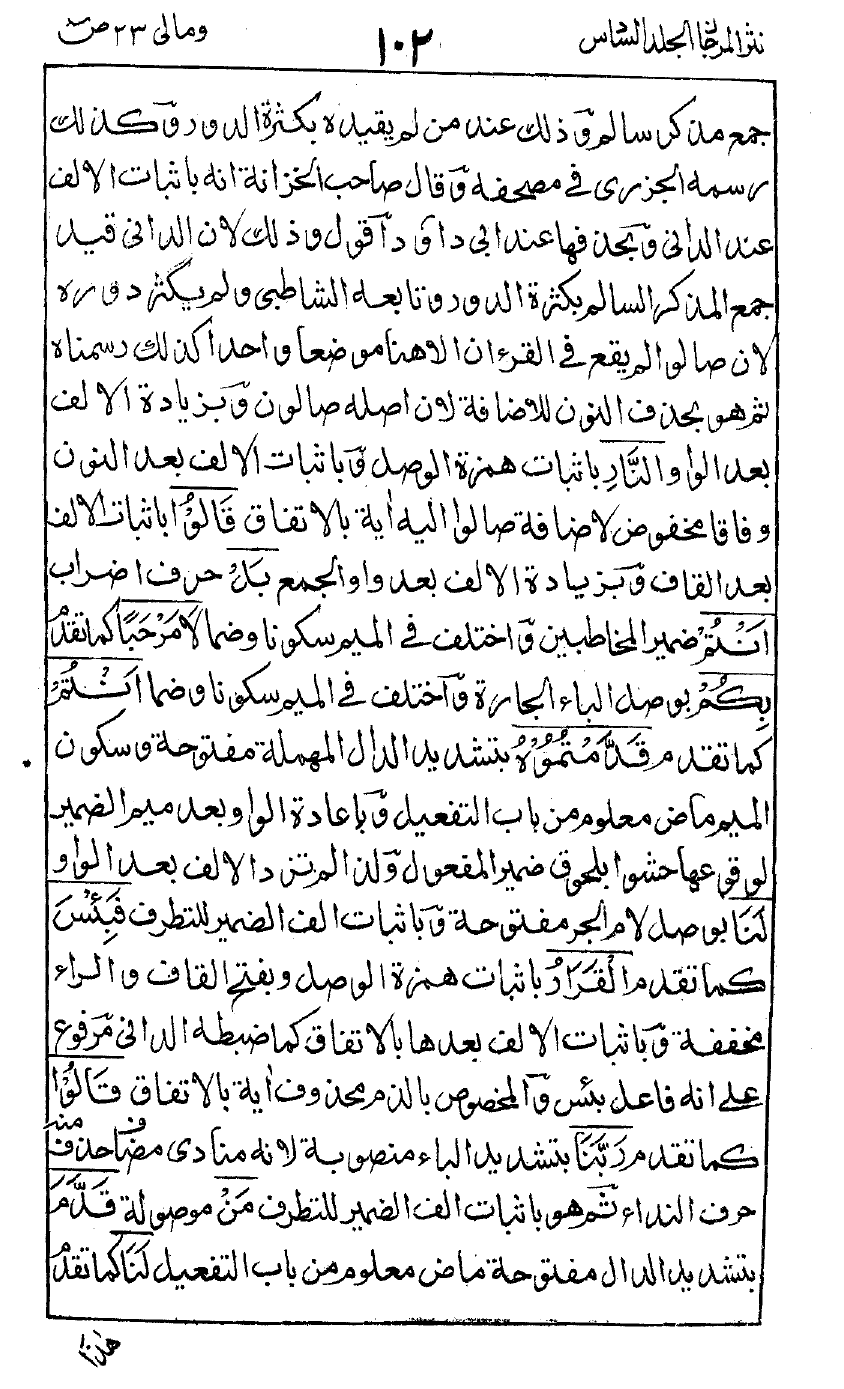 نثر المرجان المجلد السادس ١٠٢ ومالى ٢٣ ص
جمع مذكر سالم وذلك عند من لم يقيده بكثرة الدور وكذلك
رسمه الجزرى فى مصحفه وقال صاحب الخزانة انه باثبات الالف
عند الدانى وبحذفها عند ابى داؤد اقول وذلك لان الدانى قيد
جمع المذكر السالم بكثرة الدور وتابعه الشاطبى ولم يكثر دوره
لان صالوا لم يقع فى القرءان الا هنا موضعا واحدا كذلك رسمناه
ثم هو بحذف النون للاضافة لان اصله صالون وبزيادة الالف
بعد الواو النَّارِ باثبات همزة الوصل وباثبات الالف بعد النون
وفاقا مخفوض لاضافة صالوا اليه اٰية بالاتفاق قَالُوْا باثبات الالف
بعد القاف وبزيادة الالف بعد واو الجمع بَلْ حرف اضراب
اَنْتُمْ ضمير المخاطبين واختلف فى الميم سكونا وضما لَا مَرْحَبًا كما تقدم
بِكُمْ بوصل الباء الجارة واختلف فى الميم سكونا وضما اَنْتُمْ
كما تقدم قَدَّمْتُمُوْهُ بتشديد الدال المهملة مفتوحة وسكون
الميم ماض معلوم من باب التفعيل وباعادة الواو بعد ميم الضمير
لوقوعها حشوا بلحوق ضمير المفعول ولذا لم تزد الالف بعد الواو
لَنَا بوصل لام الجر مفتوحة وباثبات الف الضمير للتطرف فَبِئْسَ
كما تقدم الْقَرَارُ باثبات همزة الوصل وبفتح القاف والراء
مخففة وباثبات الالف بعدها بالاتفاق كما ضبطه الدانى مرفوع
على انه فاعل بئس والمخصوص بالذم محذوف اٰية بالاتفاق قَالُوْا
كما تقدم رَبَّنَا بتشديد الباء منصوبة لانه منادى مضاف حذف منه
حرف النداء ثم هو باثبات الف الضمير للتطرف مَنْ موصولة قَدَّمَ
بتشديد الدال مفتوحة ماض معلوم من باب التفعيل لَنَا كما تقدم
هٰذَا